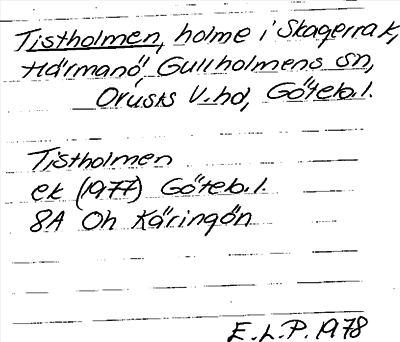 Tistholmen, holme i Skagerrak,
Härmanö, Gullholmens sn,
Orusts V.hd, Göteb.l.
Tistholmen
ek (1977) Göteb.l.
8A Oh Käringön
E.L.P. 1978